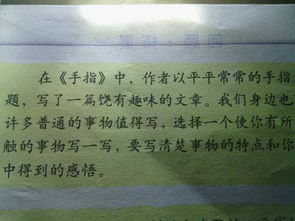 在《手指》中，作者以平平常常的手指
题，写了一篇饶有趣味的文章。我们身边也
许多普通的事物值得写，选择一个使你有所
触的事物写一写，要写清楚事物的特点和你
中得到的感悟。